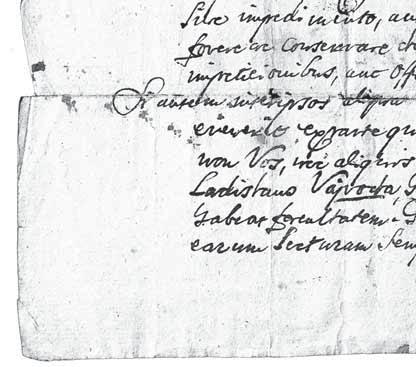 sive impedimento, au
fovere ac conservare de
impetitionibus, aut off
Si autem inscriptos aliqua
evenerit, ex parte qu
non Vos, nec aliquis
Ladislaus Vajvoda, G
habeat facultatem. G
earum lecturam sem